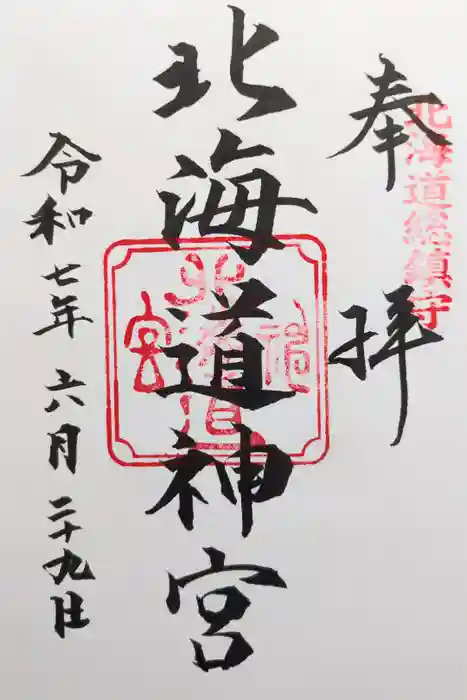 奉拝
北海道總鎮守
北海道神宮
北海道神宮
令和七年六月二十九日